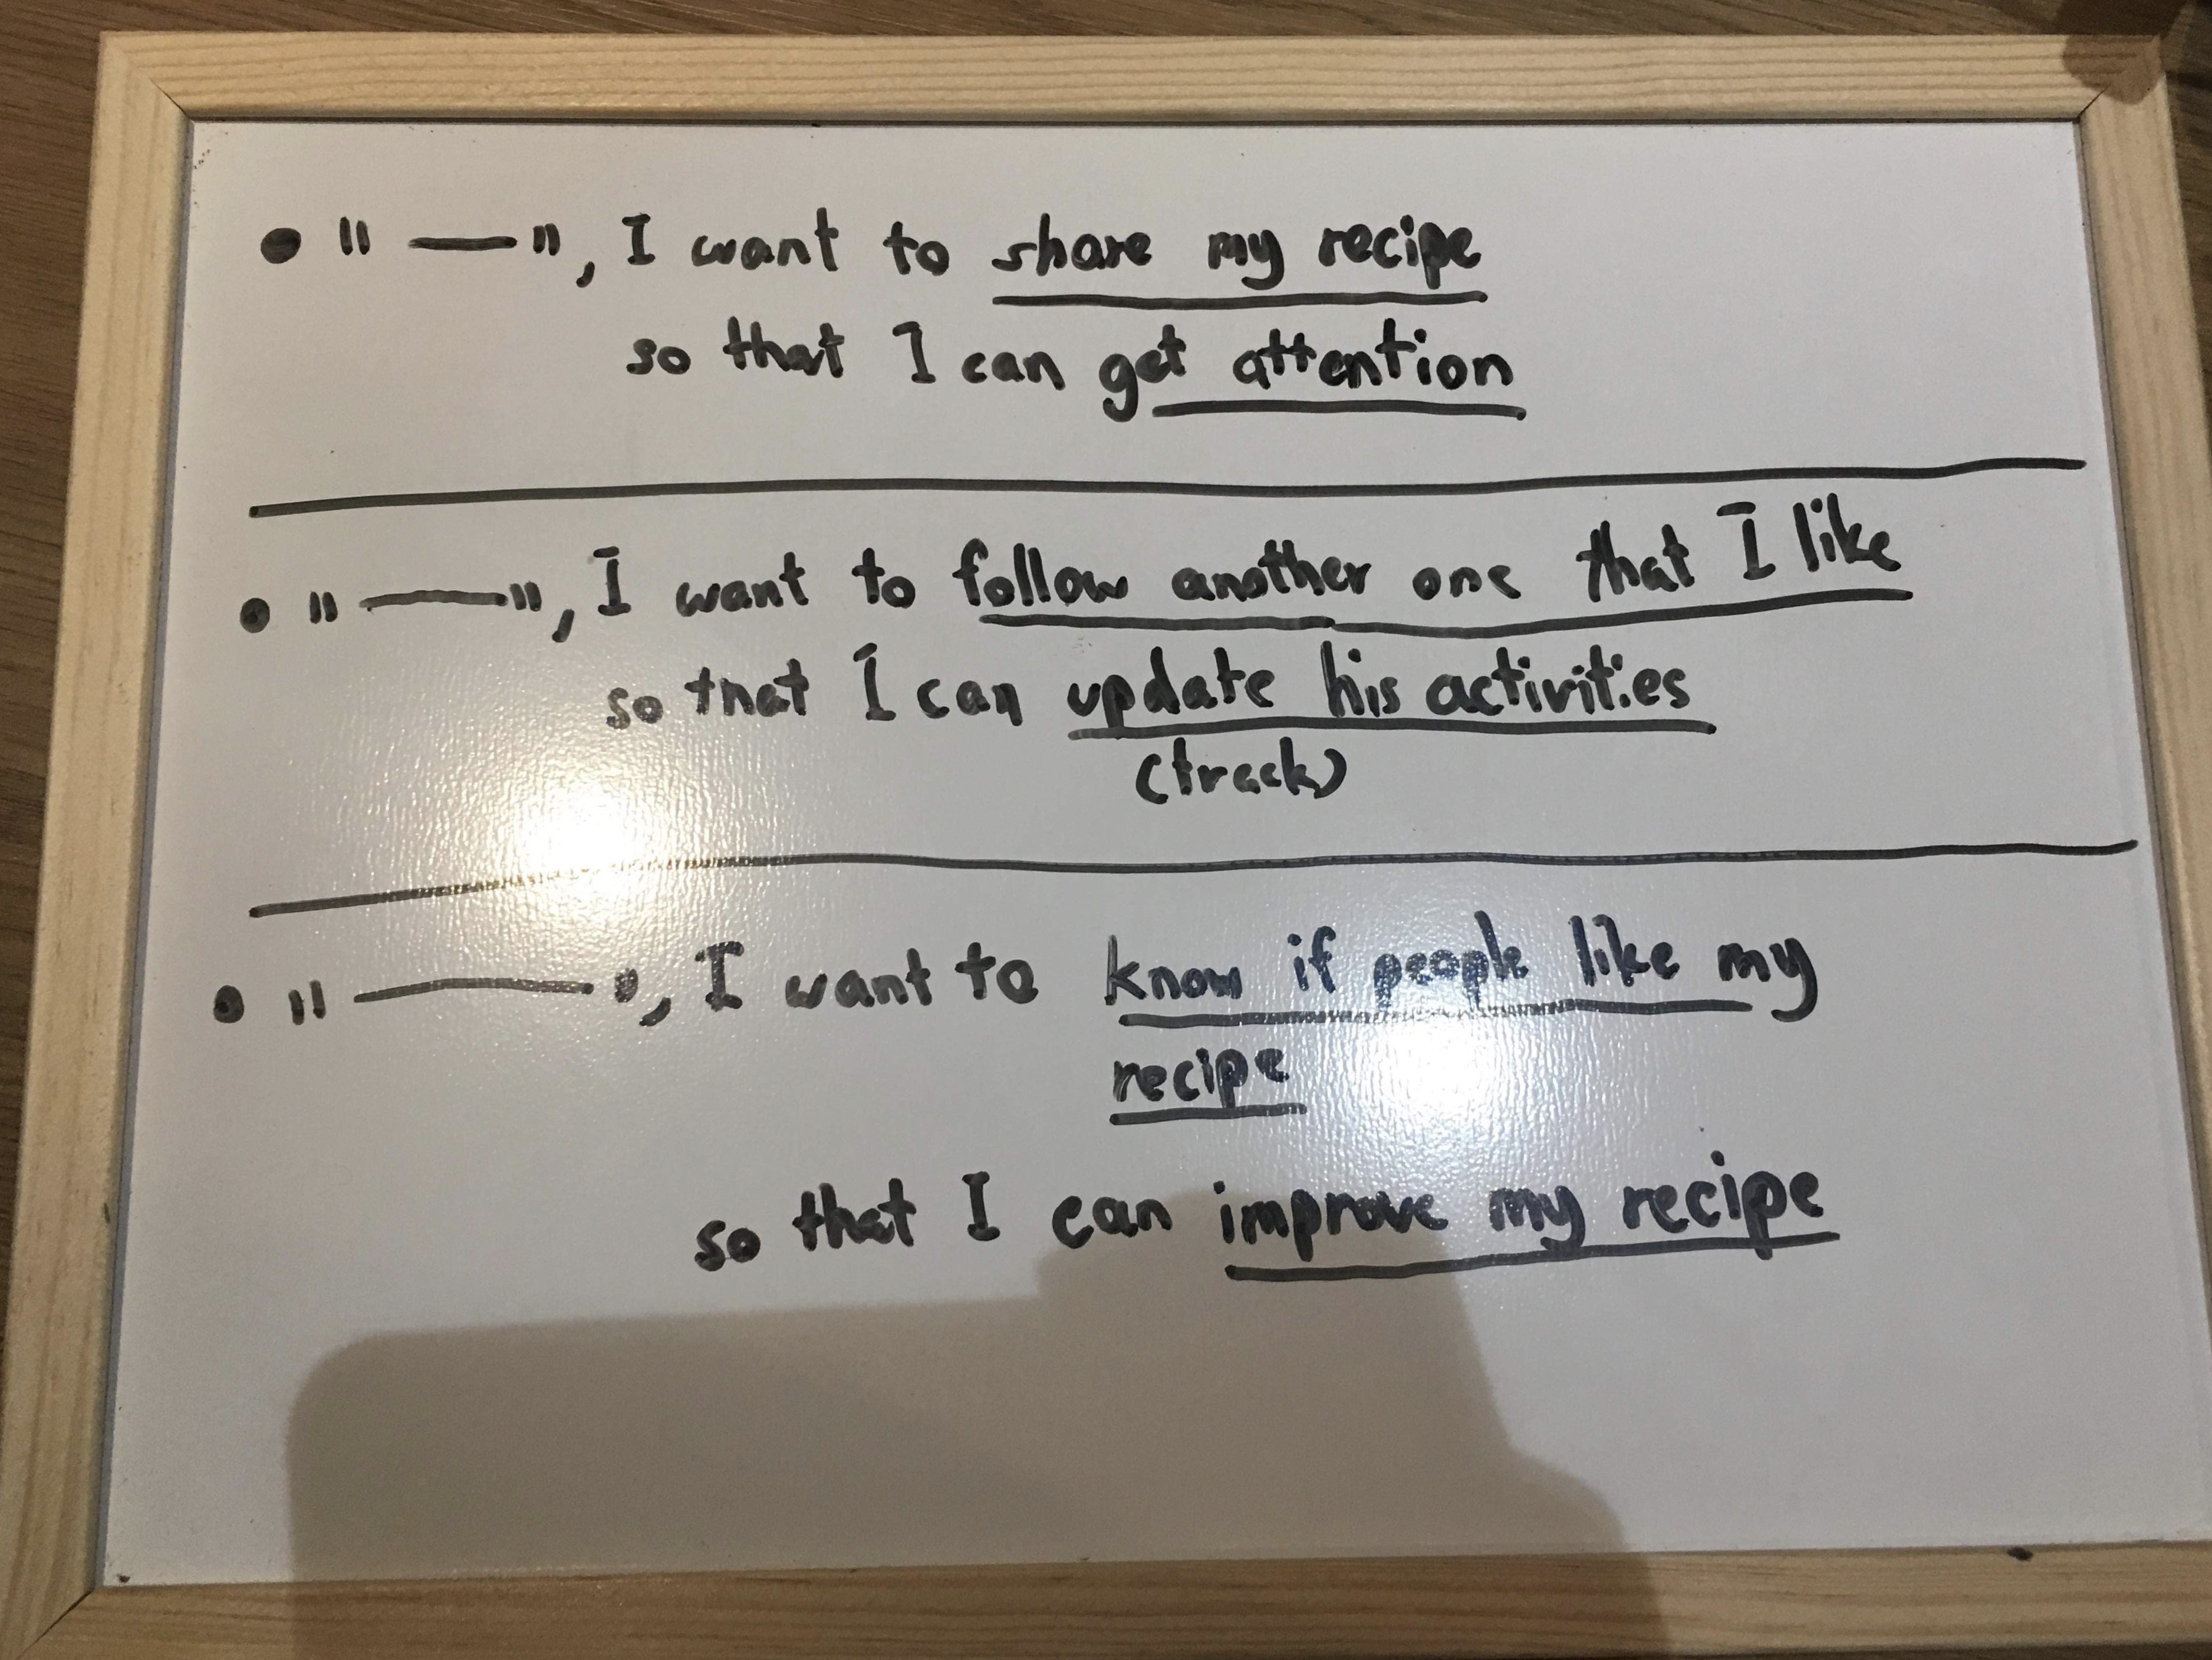 • " — ", I want to share my recipe
so that I can get attention
• " — ", I want to follow another one that I like
so that I can update his activities
(track)
• " — ", I want to know if people like my
recipe
so that I can improve my recipe